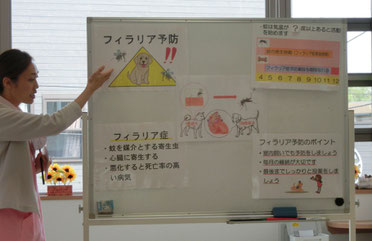 フィラリア予防!!
蚊は気温が ? 度以上あると活動
を始めます
4 5 6 7 8 9 10 11 12
フィラリア症
・蚊を媒介とする寄生虫
・心臓に寄生する
・悪化すると死亡率の高
い病気
フィラリア予防のポイント
・室内飼いでも予防をしましょう
・毎月の継続が大切です
・最後までしっかりと投薬をしま
しょう